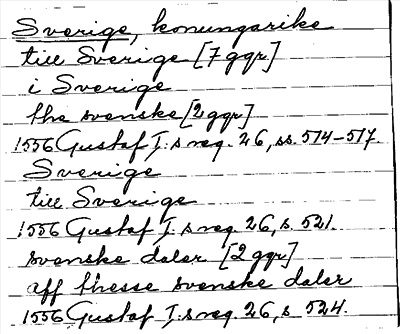 Sverige, konungarike
till Sverige [7 ggr]
i Sverige
the svenske [2 ggr]
1556 Gustaf I:s reg. 26, ss. 514-517.
Sverige
till Sverige
1556 Gustaf I:s reg. 26, s. 521.
svenske daler [2 ggr]
aff thesse svenske daler
1556 Gustaf I:s reg. 26, s. 524.